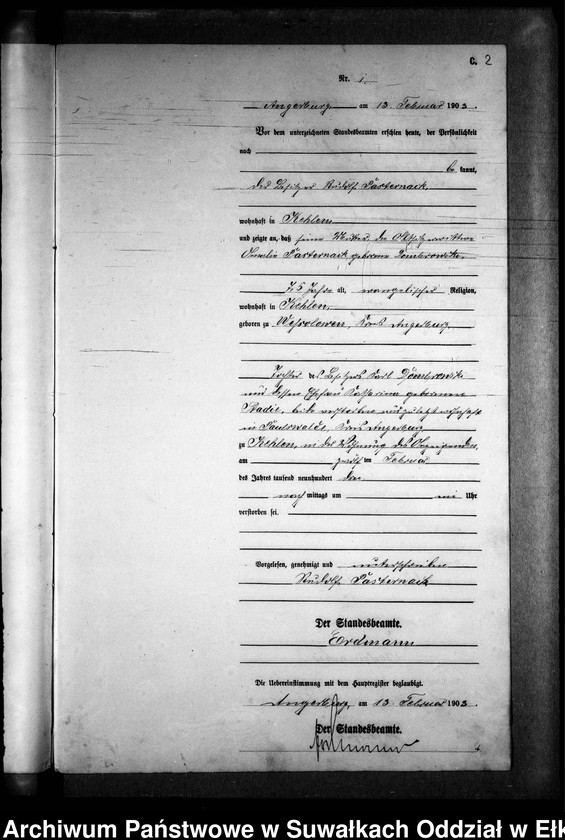 C. 2
Nr. 1
Angerburg am 13. Februar 1903.
Vor dem unterzeichneten Standesbeamten erschien heute, der Persönlichkeit
nach
be kannt,
der Besitzer Rudolf Pasternack,
wohnhaft in Kehlen
und zeigte an, daß seine Mutter, die
Pasternack geborene Dombrowski,
75 Jahre alt, evangelischer Religion,
wohnhaft in Kehlen,
geboren zu Wessolowen, Kreis Angerburg,
Tochter des Besitzers Karl Dombrowski
und dessen Ehefrau Katharina geborene
Stadie, beide verstorben und zuletzt wohnhaft
in Paulswalde, Kreis Angerburg
zu Kehlen, in der Wohnung des Anzeigenden,
am zwölf ten Februar
des Jahres tausend neunhundert drei
nach mittags um ein Uhr
verstorben sei.
Vorgelesen, genehmigt und unterschrieben
Rudolf Pasternack
Der Standesbeamte.
Erdmann
Die Uebereinstimmung mit dem Hauptregister beglaubigt.
Angerburg, am 13. Februar 1903.
Der Standesbeamte.
Erdmann
Archiwum Państwowe w Suwałkach Oddział w Ełk